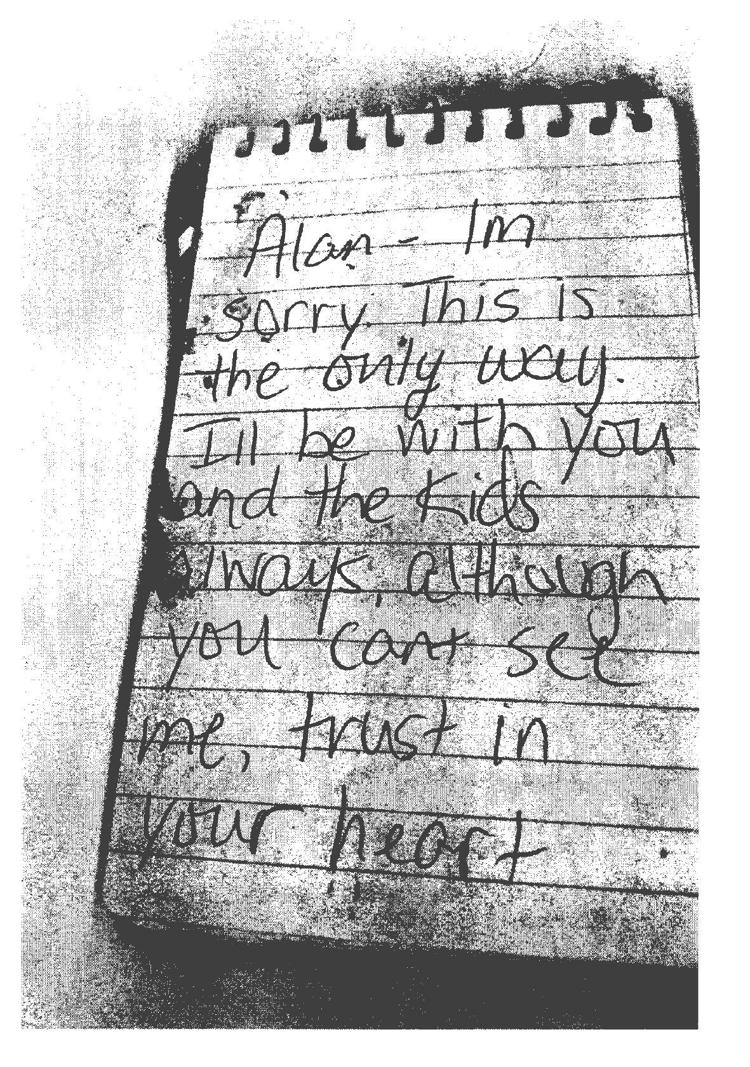 Alan - Im
sorry. This is
the only way.
I'll be with you
and the kids
always, although
you cant see
me, trust in
your heart